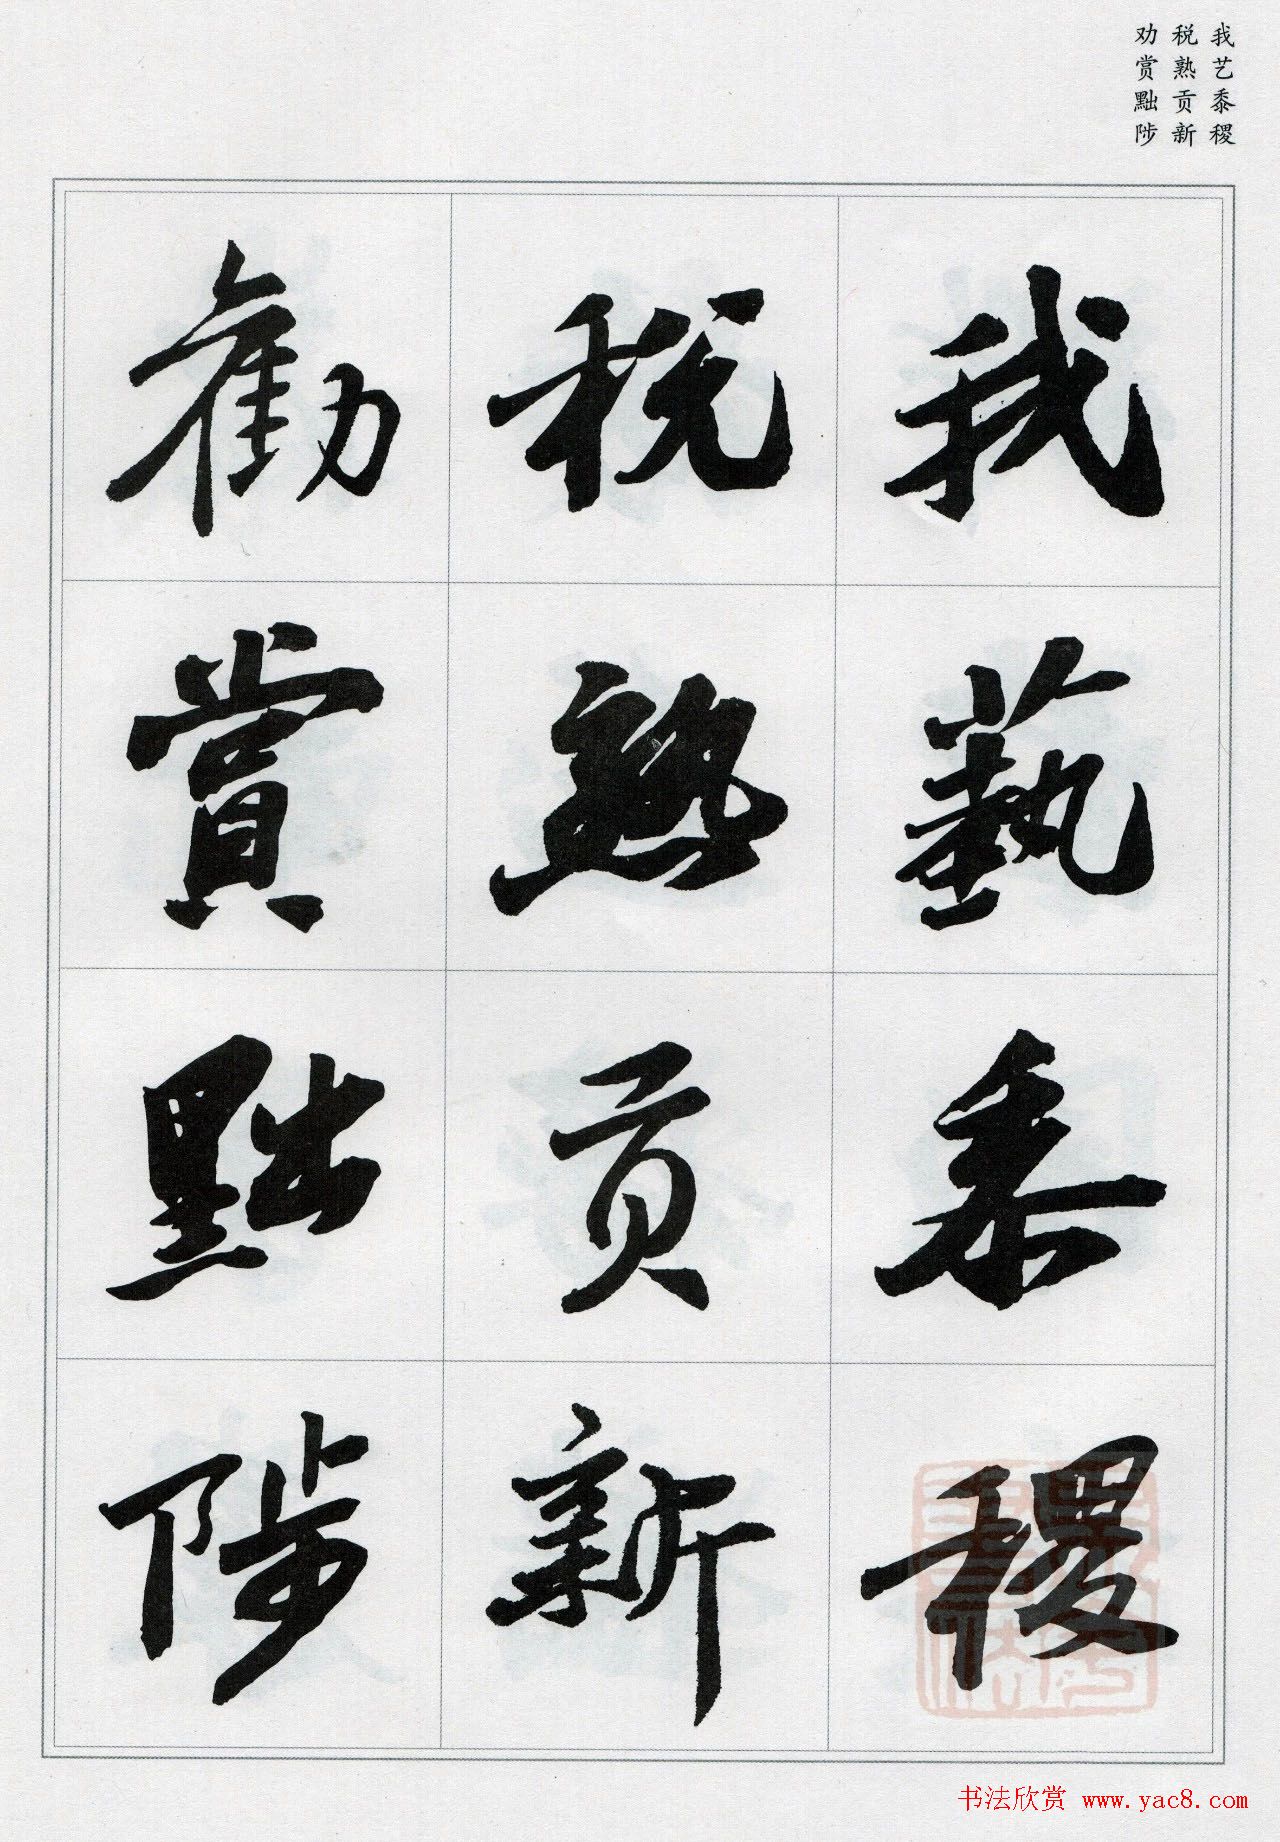 我艺黍稷
税熟贡新
劝赏黜陟
我藝黍稷
税熟贡新
勸賞黜陟
书法欣赏 www.yac8.com